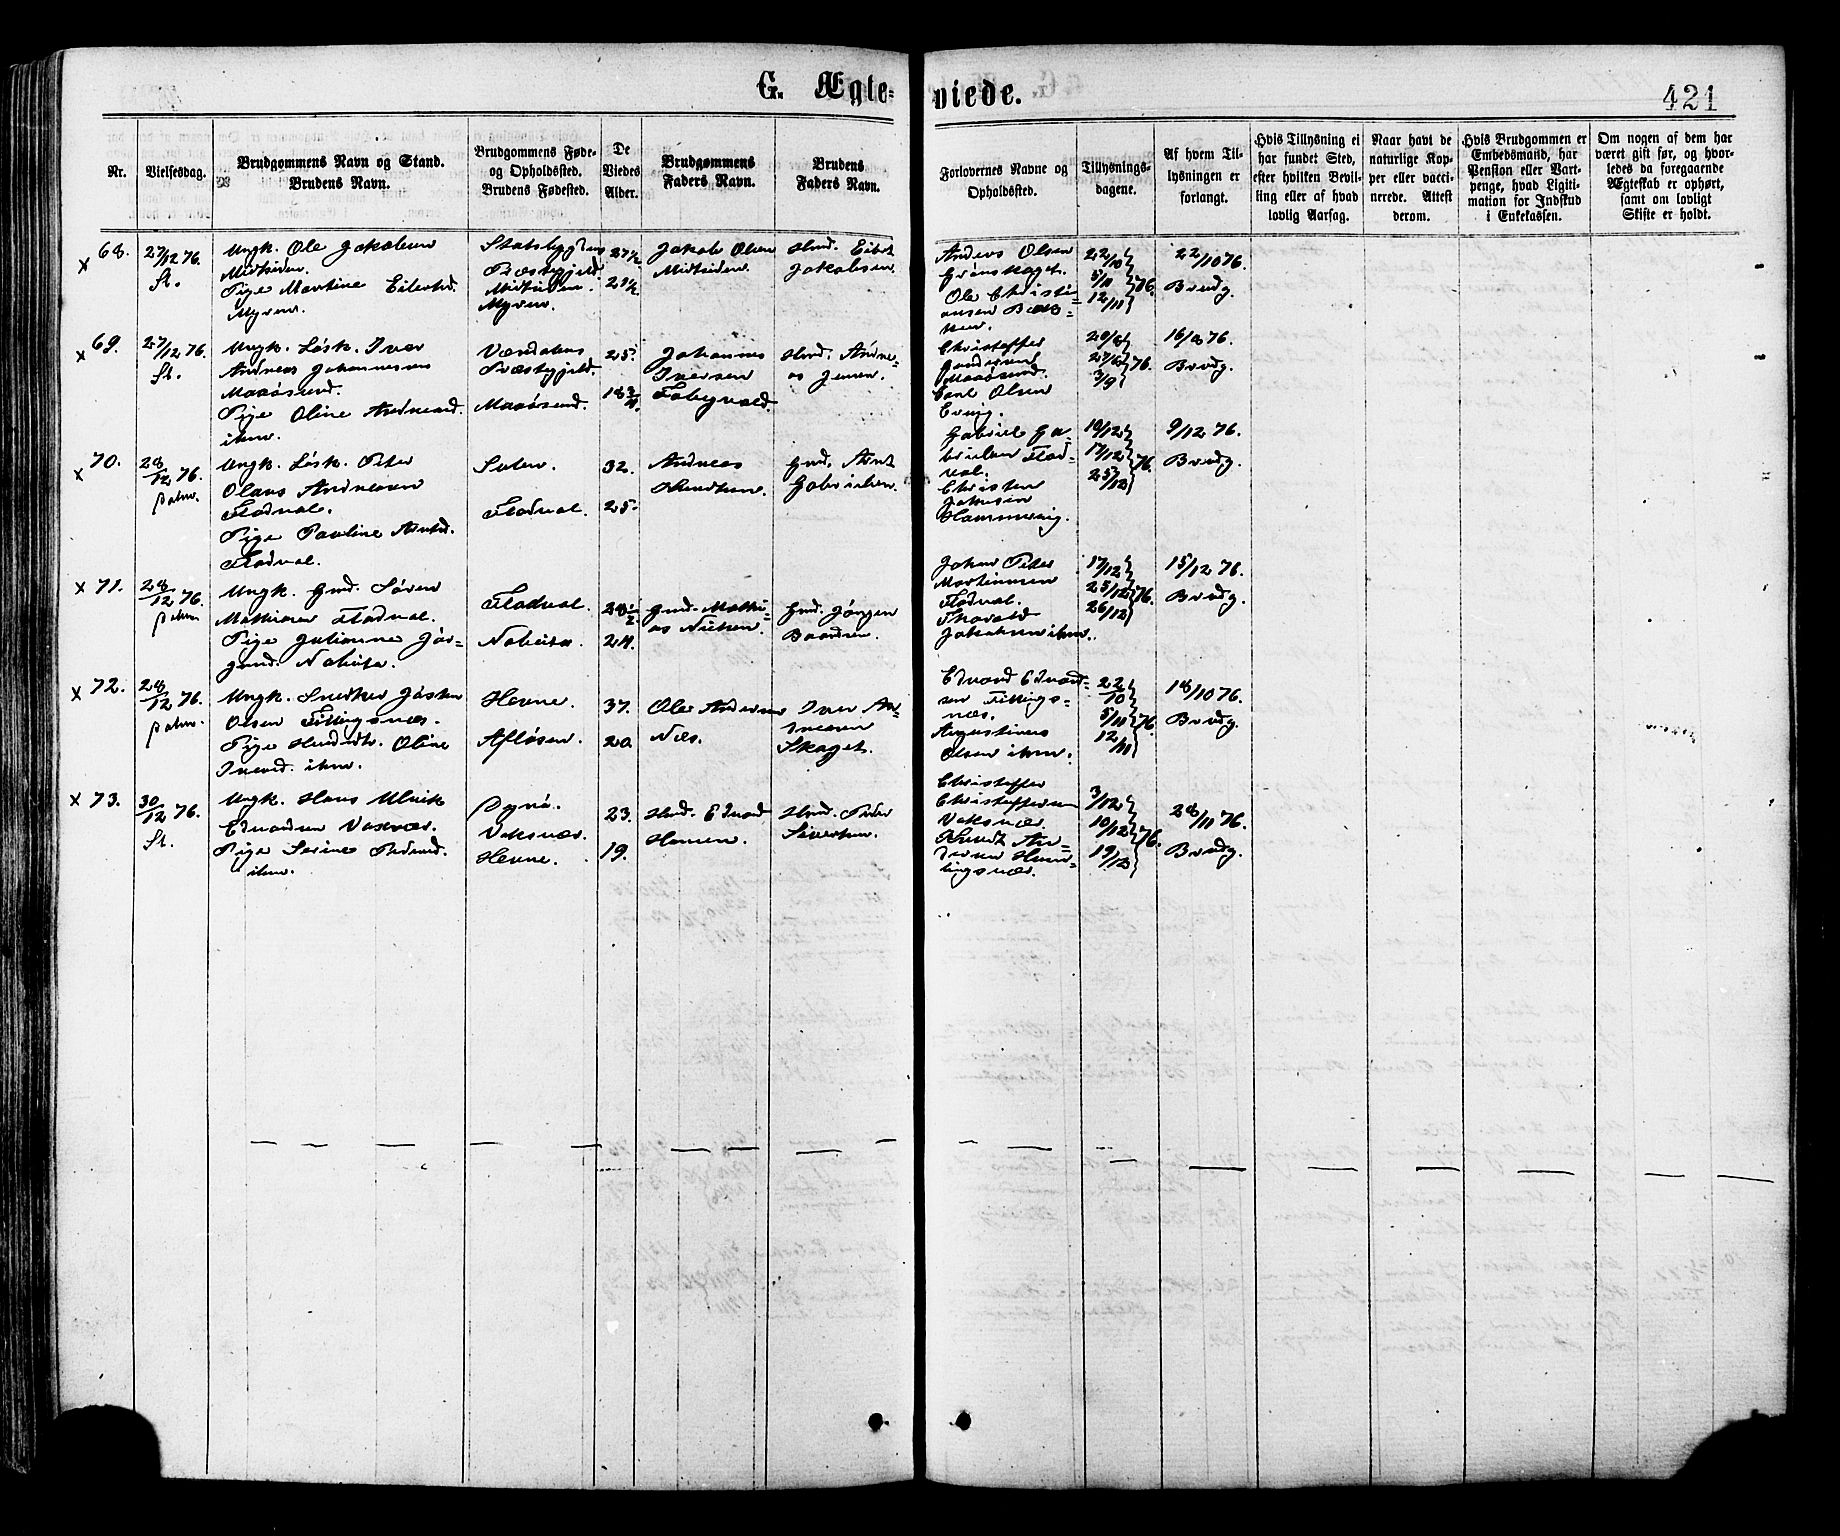 G. Ægte=
viede.
421
Nr.
Vielsesdag.
Brudgommens Navn og Stand.
Brudens Navn.
Brudgommens Føde-
og Opholdssted.
Brudens Fødested.
De
Viedes
Alder.
Brudgommens
Faders Navn.
Brudens
Faders Navn.
Forlovernes Navne og
Opholdssted.
Tillysnings-
dagene.
Af hvem Til-
lysningen er
forlangt.
Hvis Tillysning ei
har fundet Sted,
efter hvilken Bevil-
ling eller af hvad
lovlig Aarsag.
Naar havt de
naturlige Kop-
per eller vacci-
nerede. Attest
derom.
Hvis Brudgommen er
Embedsmand, har
Pension eller Vart-
penge, hvad Ligiti-
mation for Indskud
i Enkekassen.
Om nogen af dem har
været gift før, og hvor-
ledes da foregaaende
Ægteskab er ophørt,
samt om lovligt
Skifte er holdt.
x 68.
27/12 76.
St.
Ungk. Ole Jakobsen
Midtsiden.
Pige Martine Eilertsd.
Myren.
Stadsbygdens
Præstegjeld
Midtsiden.
Myren.
27½
21½
Jakob Olsen
Midtsiden.
Hmd. Eilert
Jakobsen
Anders Olsen
Grønskaget.
Ole Christi-
ansen
22/10
5/11 } 76.
12/11
22/10 76.
Brudg.
x 69.
27/12 76.
St.
Ungk. Løsk. Iver
Andreas Johannesen
Mausund.
Pige Oline Andreasd.
ibm.
Værdalens
Præstegjeld.
Mausund.
25.
18¾
Johannes
Iversen
Hmd. Andre-
as Jensen.
Christoffer
Mausund.
Carl Olsen
20/8
27/8 } 76.
3/9
16/8 76.
Brudg.
x 70.
28/12 76.
Ungk. Løsk. Peter
Olaus Andreasen
Flodval.
Pige Pauline Arntsd.
Flodval.
Sulen.
Flodval.
32.
25.
Andreas
Knudsen.
Gmd. Arnt
Gabrielsen.
Gabriel Ga-
brielsen Flod-
val.
Christen
Hammervig.
10/12
17/12 } 76.
25/12
9/12 76.
Brudg.
x 71.
28/12 76.
Ungk. Gmd. Søren
Mathiasen Flodval.
Pige Julianne Jør-
gensd. Nabeita.
Flodval.
Nabeita
28½
24.
Gmd. Mathi-
as Nielsen.
Gmd. Jørgen
Baardsen.
Johan Peter
Martinusen
Flodval.
Jakobsen ibm.
17/12
25/12 } 76.
26/12
15/12 76.
Brudg.
x 72.
28/12 76.
Ungk. Sivert Jøsten
Olsen Fillingsnæs.
Pige Oline
Iversd. ibm.
Hevne.
Afløsen.
37.
20.
Ole Andersen
Næs.
Iver An-
dersen
Skaget.
Edvard Edvard-
sen Fillings-
næs.
Augustinus
Olsen ibm.
22/10
5/11 } 76.
12/11
18/10 76.
Brudg.
x 73.
30/12 76.
St.
Ungk. Hans Ulrik
Edvardsen Vaxvær.
Pige Serine Pedersd.
ibm.
Dyrø.
Vaksvær.
Hevne.
23.
19.
Hmd. Edvard
Hansen.
Hmd. Peder
Sivertsen.
Christoffer
Christoffersen
Vaksvær.
Knudt An-
dersen Hem-
lingsvær.
3/12
10/12 } 76.
19/12
28/11 76.
Brudg.